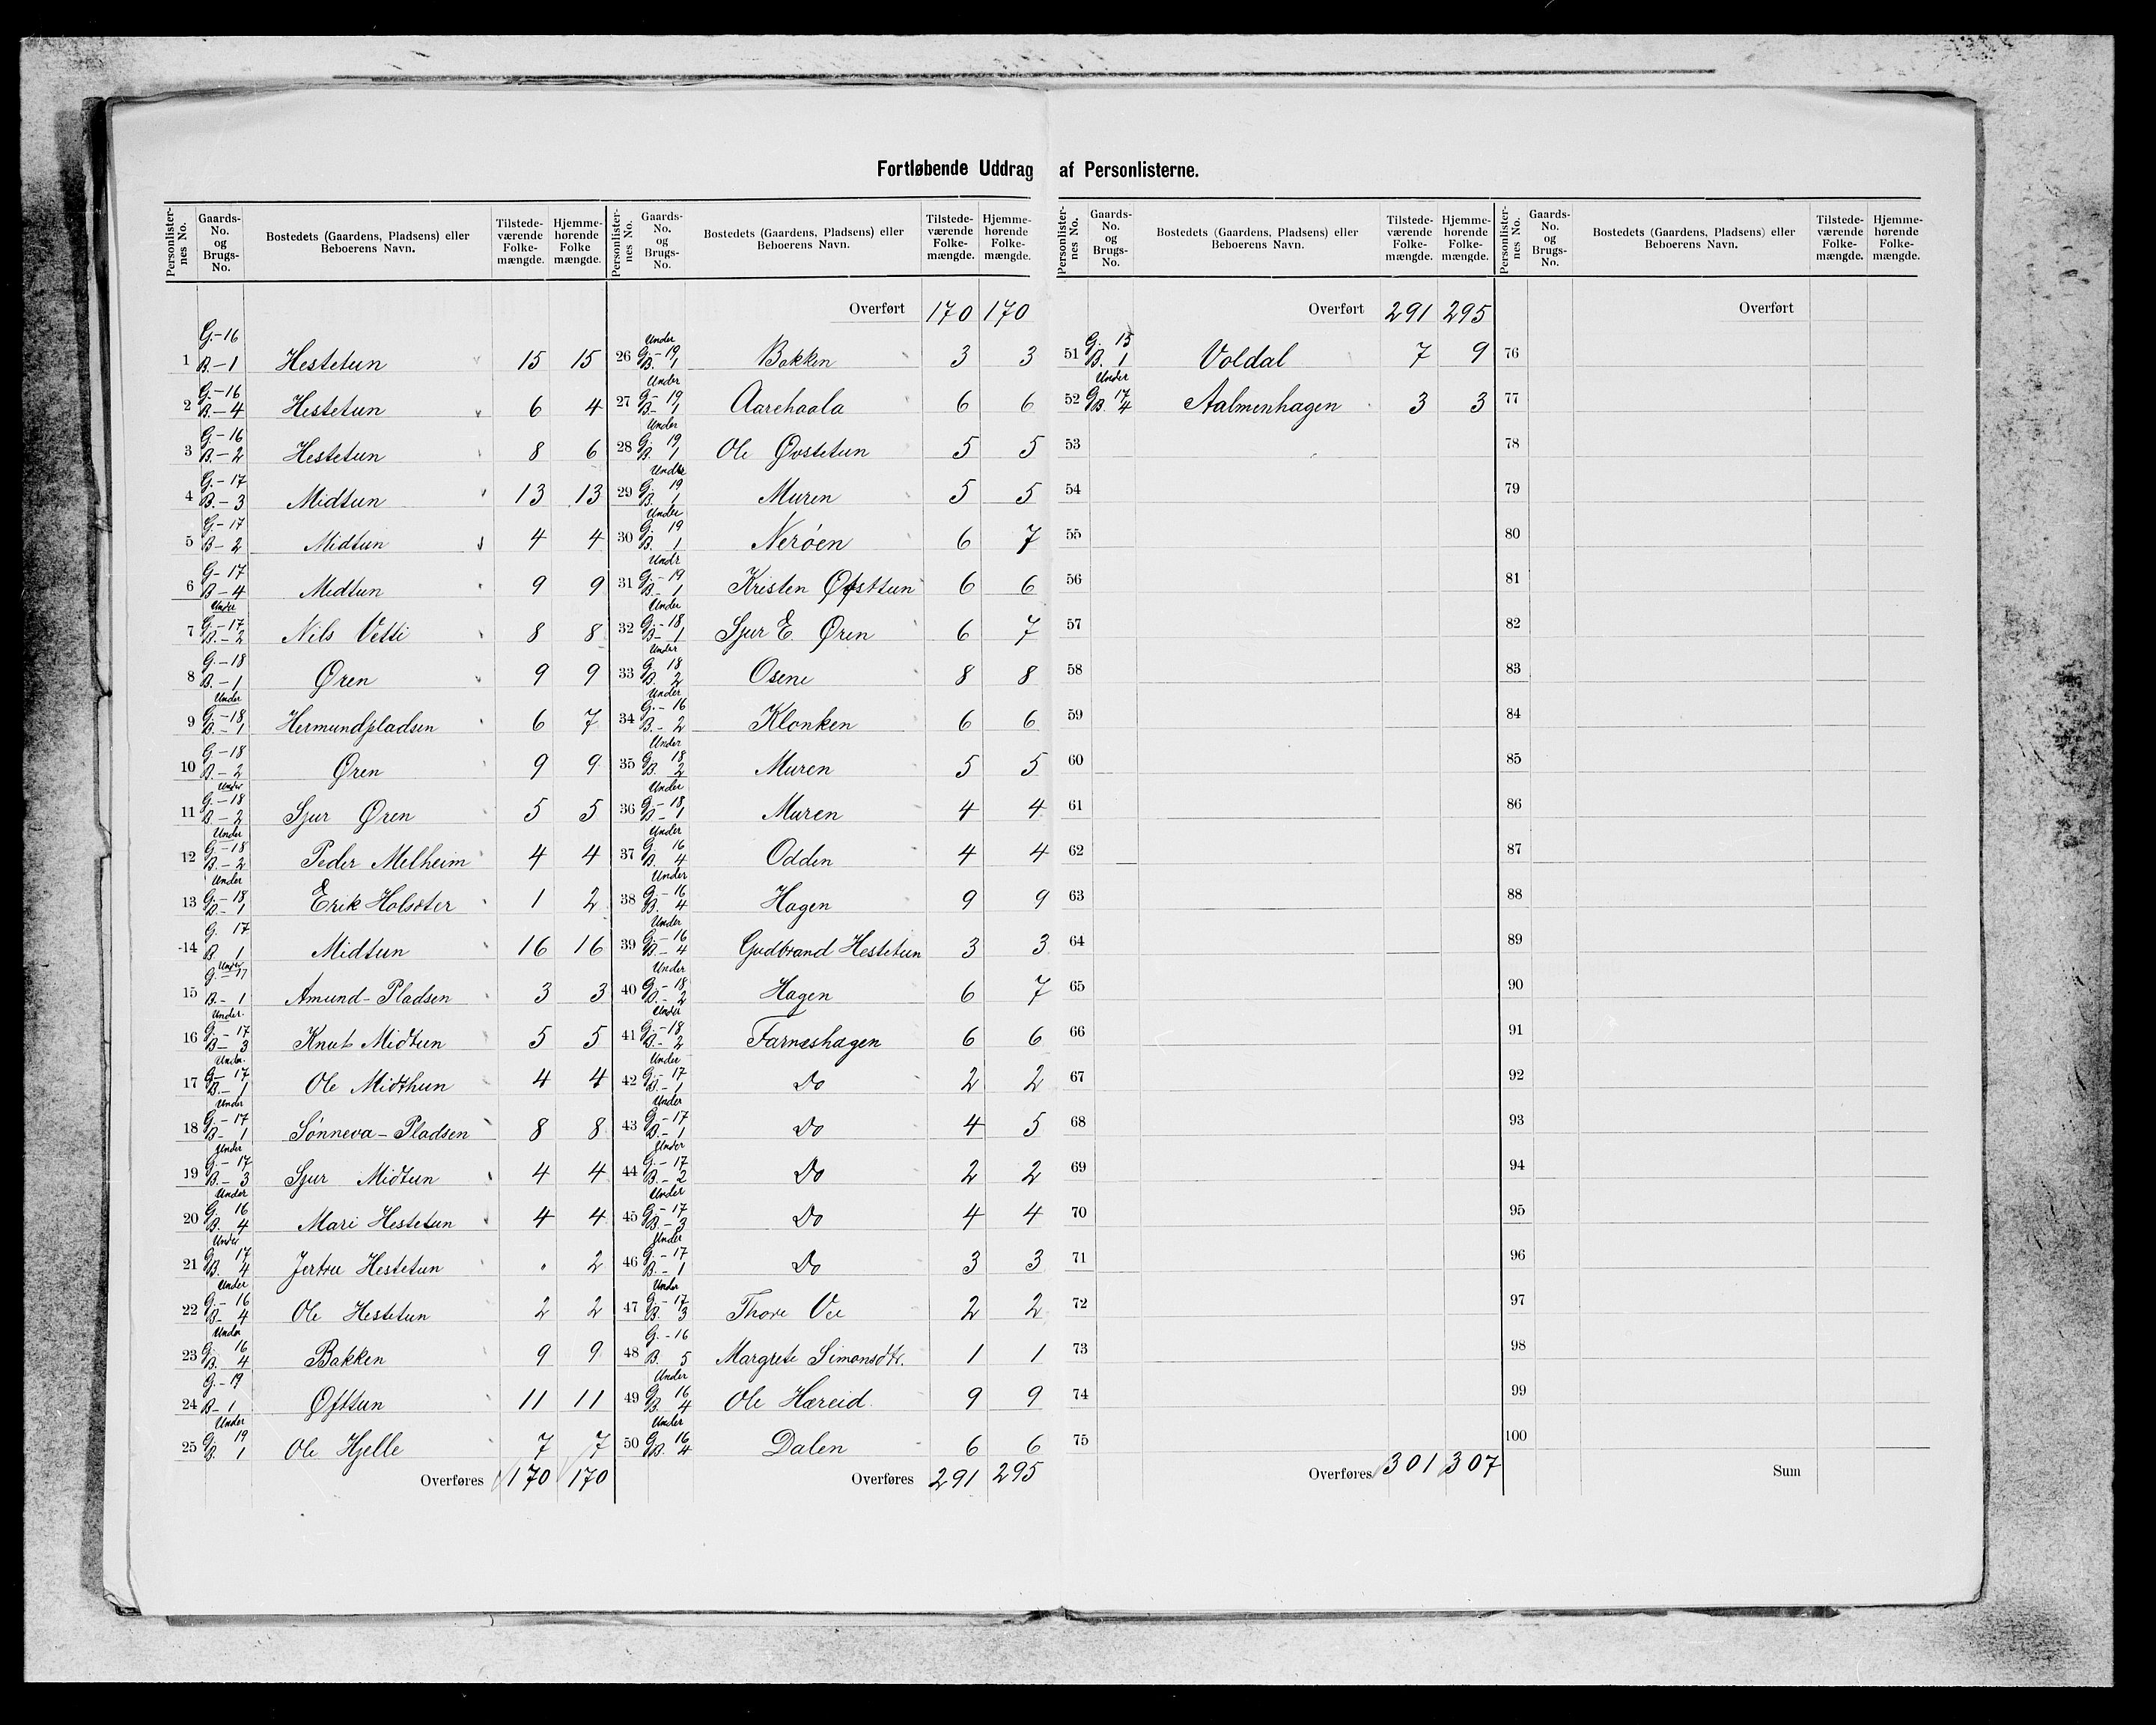 Fortløbende Uddrag af Personlisterne.
Personlisternes No. Gaards-No. og Brugs-No. Bostedets (Gaardens, Pladsens) eller Beboerens Navn. Tilstedeværende Folkemængde. Hjemmehørende Folkemængde.
1 G.-16 B.-1 Hestetun 15 15
2 G.-16 B.-4 Hestetun 6 4
3 G.-16 B.-2 Hestetun 8 6
4 G.-17 B.-3 Midtun 13 13
5 G.-17 B-2 Midtun 4 4
6 G-17 B-4 Midtun 9 9
7 Under G.-17 B.-2 Nils Vetti 8 8
8 G.-18 B.-1 Øren 9 9
9 Under G.-18 B.-1 Hermundpladsen 6 7
10 G-18 B.-2 Øren 9 9
11 Under G.-18 B-2 Sjur Øren 5 5
12 Under G-18 B-2 Peder Melheim 4 4
13 Under G.-18 B-1 Erik Holsæter 1 2
14 G. 17 B 1 Midtun 16 16
15 Under G.-17 B-1 Amund-Pladsen 3 3
16 Under G.-17 B-3 Knut Midtun 5 5
17 Under G-17 B.-1 Ole Midthun 4 4
18 Under G.-17 B-1 Sønneva-Pladsen 8 8
19 Under G.-17 B.-3 Sjur Midtun 4 4
20 Under G. 16 B. 4 Mari Hestetun 4 4
21 Under G. 17 B. 4 Jertru Hestetun . 2
22 Under G.-16 B-4 Ole Hestetun 2 2
23 Under G. 16 B. 4 Bakken 9 9
24 G.-19 B-1 Øfstun 11 11
25 Under G. 19 B. 1 Ole Hjelle 7 7
Overføres 170 170
Personlisternes No. Gaards-No. og Brugs-No. Bostedets (Gaardens, Pladsens) eller Beboerens Navn. Tilstedeværende Folkemængde. Hjemmehørende Folkemængde.
Overført 170 170
26 Under G.-19 B. 1 Bakken 3 3
27 Under G-19 B-1 Aarehaala 6 6
28 Under G. 19 B. 1 Ole Øvstetun 5 5
29 Under G. 19 B. 1 Muren 5 5
30 Under G. 19 B. 1 Nerøen 6 7
31 Undr G.-19 B.-1 Kristen Øfsttun 6 6
32 Under G.-18 B-1 Sjur E Øren 6 7
33 Under G. 18 B. 2 Osene 8 8
34 Under G.-16 B.-2 Klonken 6 6
35 Under G. 18 B. 2 Muren 5 5
36 Under G.-18 B-1 Muren 4 4
37 Under G. 16 B. 4 Odden 4 4
38 Under G.-16 B. 4 Hagen 9 9
39 Under G.-16 B.-4 Gudbrand Hestetun 3 3
40 Under G.-18 B.-2 Hagen 6 7
41 Under G.-18 B.-2 Farneshagen 6 6
42 Under G.-17 B.-1 Do 2 2
43 Under G.-17 B.-1 Do 4 5
44 Under G.-17 B.-2 Do 2 2
45 Under G.-17 B.-3 Do 4 4
46 Under G.-17 B.-1 Do 3 3
47 Under G.-17 B. 3 Thore Ve 2 2
48 G.-16 B. 5 Margrete Simonsdtr. 1 1
49 Under G. 16 B. 4 Ole Hæreid 9 9
50 Under G. 16 B. 4 Dalen 6 6
Overføres 291 295
Personlisternes No. Gaards-No. og Brugs-No. Bostedets (Gaardens, Pladsens) eller Beboerens Navn. Tilstedeværende Folkemængde. Hjemmehørende Folkemængde.
Overført 291 295
51 G. 15 B. 1 Voldal 7 9
52 Under G. 17 B. 4 Aalmenhagen 3 3
53
54
55
56
57
58
59
60
61
62
63
64
65
66
67
68
69
70
71
72
73
74
75
Overføres 301 307
Personlisternes No. Gaards-No. og Brugs-No. Bostedets (Gaardens, Pladsens) eller Beboerens Navn. Tilstedeværende Folkemængde. Hjemmehørende Folkemængde.
Overført
76
77
78
79
80
81
82
83
84
85
86
87
88
89
90
91
92
93
94
95
96
97
98
99
100
Sum